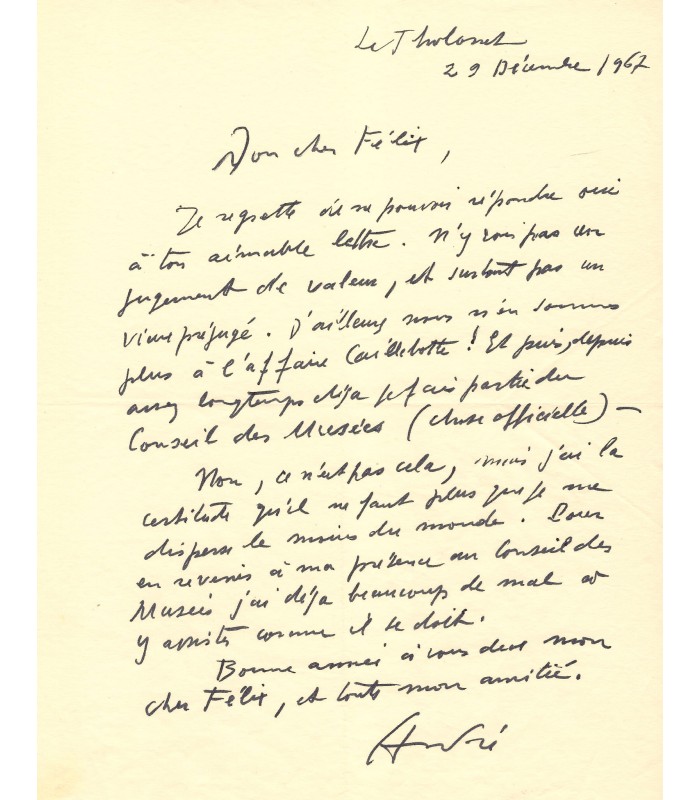 Le Tholonet
29 Décembre 1967
Mon cher Félix,
Je regrette de ne pouvoir répondre oui
à ton aimable lettre. N'y vois pas un
jugement de valeur, et surtout pas un
vieux préjugé. D'ailleurs nous n'en sommes
plus à l'affaire Caillebotte ! Et puis, depuis
assez longtemps déjà je fais partie du
Conseil des Musées (chose officielle) —
Non, ce n'est pas cela, mais j'ai la
certitude qu'il ne faut plus que je me
disperse le moins du monde. Pour
en revenir à ma présence au Conseil des
Musées j'ai déjà beaucoup de mal à
y assister comme il se doit.
Bonne année à vous deux mon
cher Félix, et toute mon amitié.
André